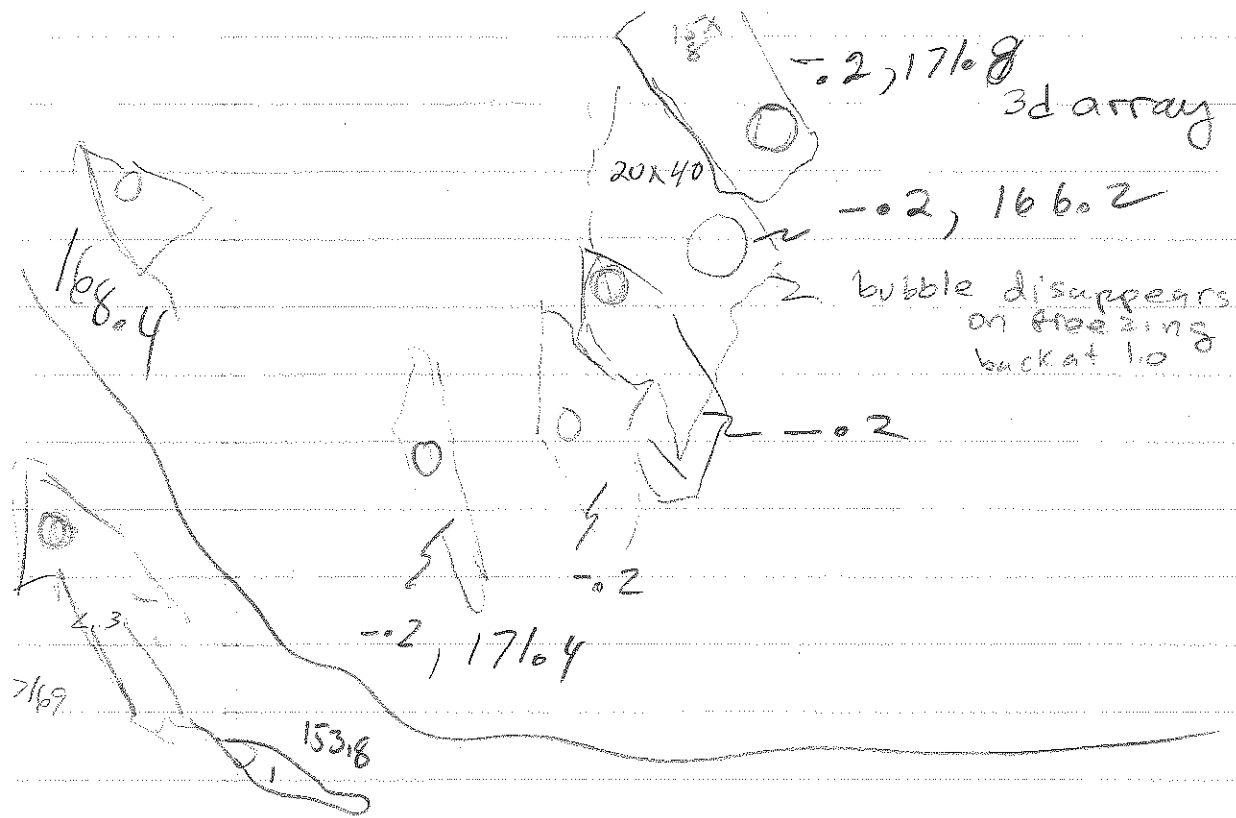 -.2, 171.8
3d array
20x40
-.2, 166.2
168.4
bubble disappears
on freezing
back at 1.0
--.2
-.2
-.2, 171.4
>169
153.8
1